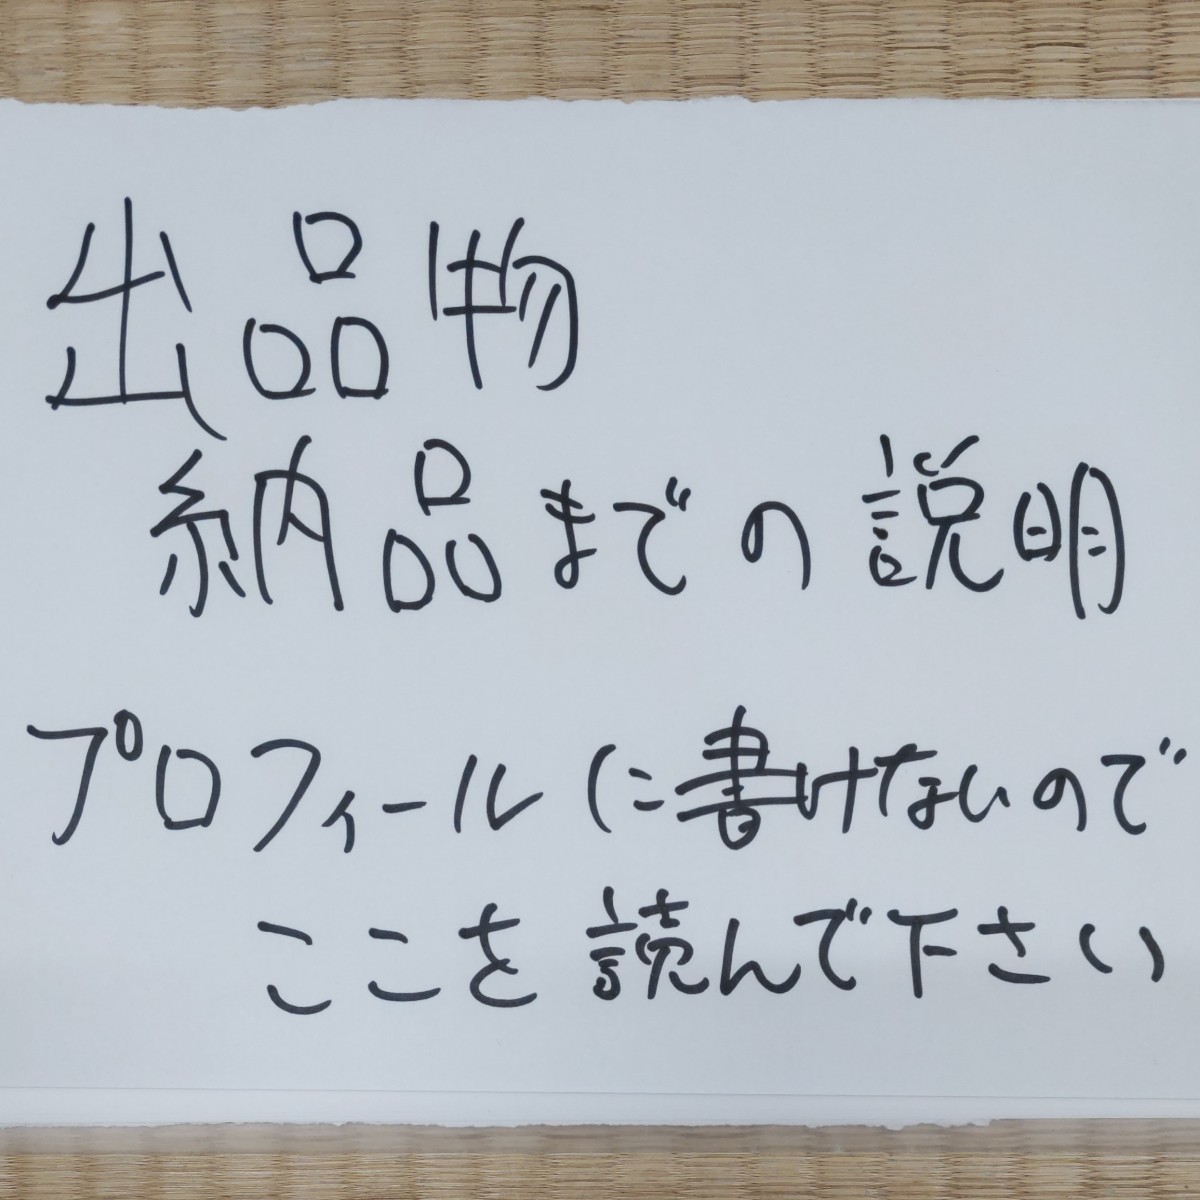 出品物
納品までの説明
プロフィールに書けないので
ここを読んで下さい